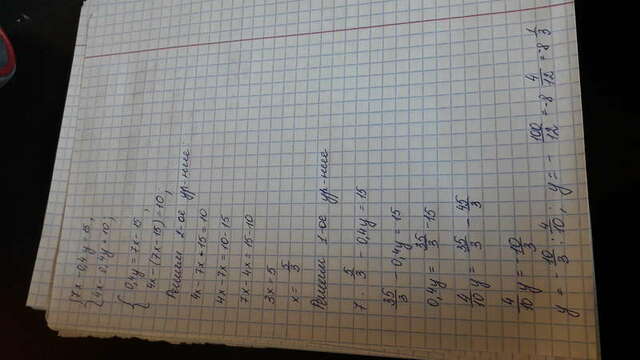 {7x - 0,4y = 15,
{4x - 0,4y = 10;
{0,4y = 7x - 15,
{4x - (7x - 15) = 10,
Решим 2-ое ур-ние:
4x - 7x + 15 = 10
4x - 7x = 10 - 15
7x - 4x = 15 - 10
3x = 5
x = 5/3
Решим 1-ое ур-ние
7 · 5/3 - 0,4y = 15
35/3 - 0,4y = 15
0,4y = 35/3 - 15
4/10 y = 35/3 - 45/3
4/10 y = - 10/3
y = - 10/3 : 4/10; y = - 100/12 = -8 4/12 = -8 1/3